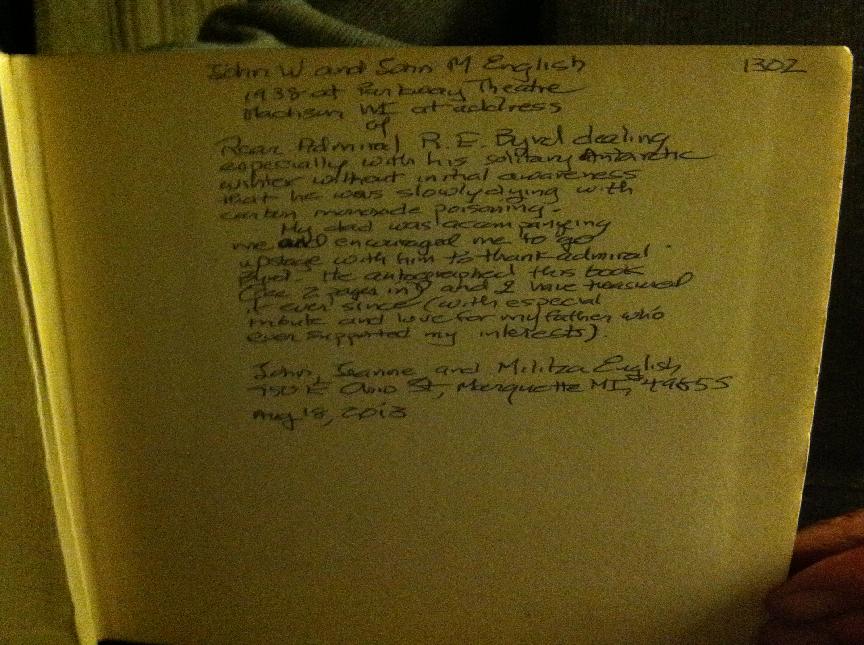 John W and John M English 1302
1938 at Parkway Theatre
Madison WI at address
of
Rear Admiral R. E. Byrd dealing
especially with his solitary Antarctic
winter without initial awareness
that he was slowly dying with
carbon monoxide poisoning.
My dad was accompanying
me and encouraged me to go
upstage with him to thank admiral
Byrd. He autographed this book
(see 2 pages in) and I have treasured
it ever since (with especial
tribute and love for my father who
ever supported my interests).
John, Jeanne and Militza English
750 E Ohio St, Marquette MI, 49855
Aug 18, 2013